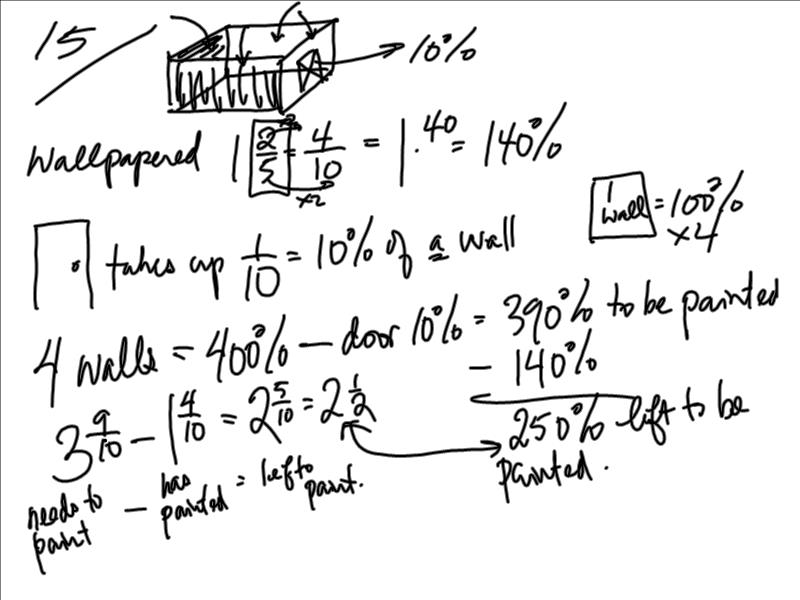 15
10%
Wallpapered 1 2/5 = 4/10 = 1.40 = 140%
x2
1 wall = 100%
x4
takes up 1/10 = 10% of a wall
4 walls = 400% — door 10% = 390% to be painted
- 140%
250% left to be painted.
3 9/10 - 1 4/10 = 2 5/10 = 2 1/2
needs to paint - has painted = left to paint.